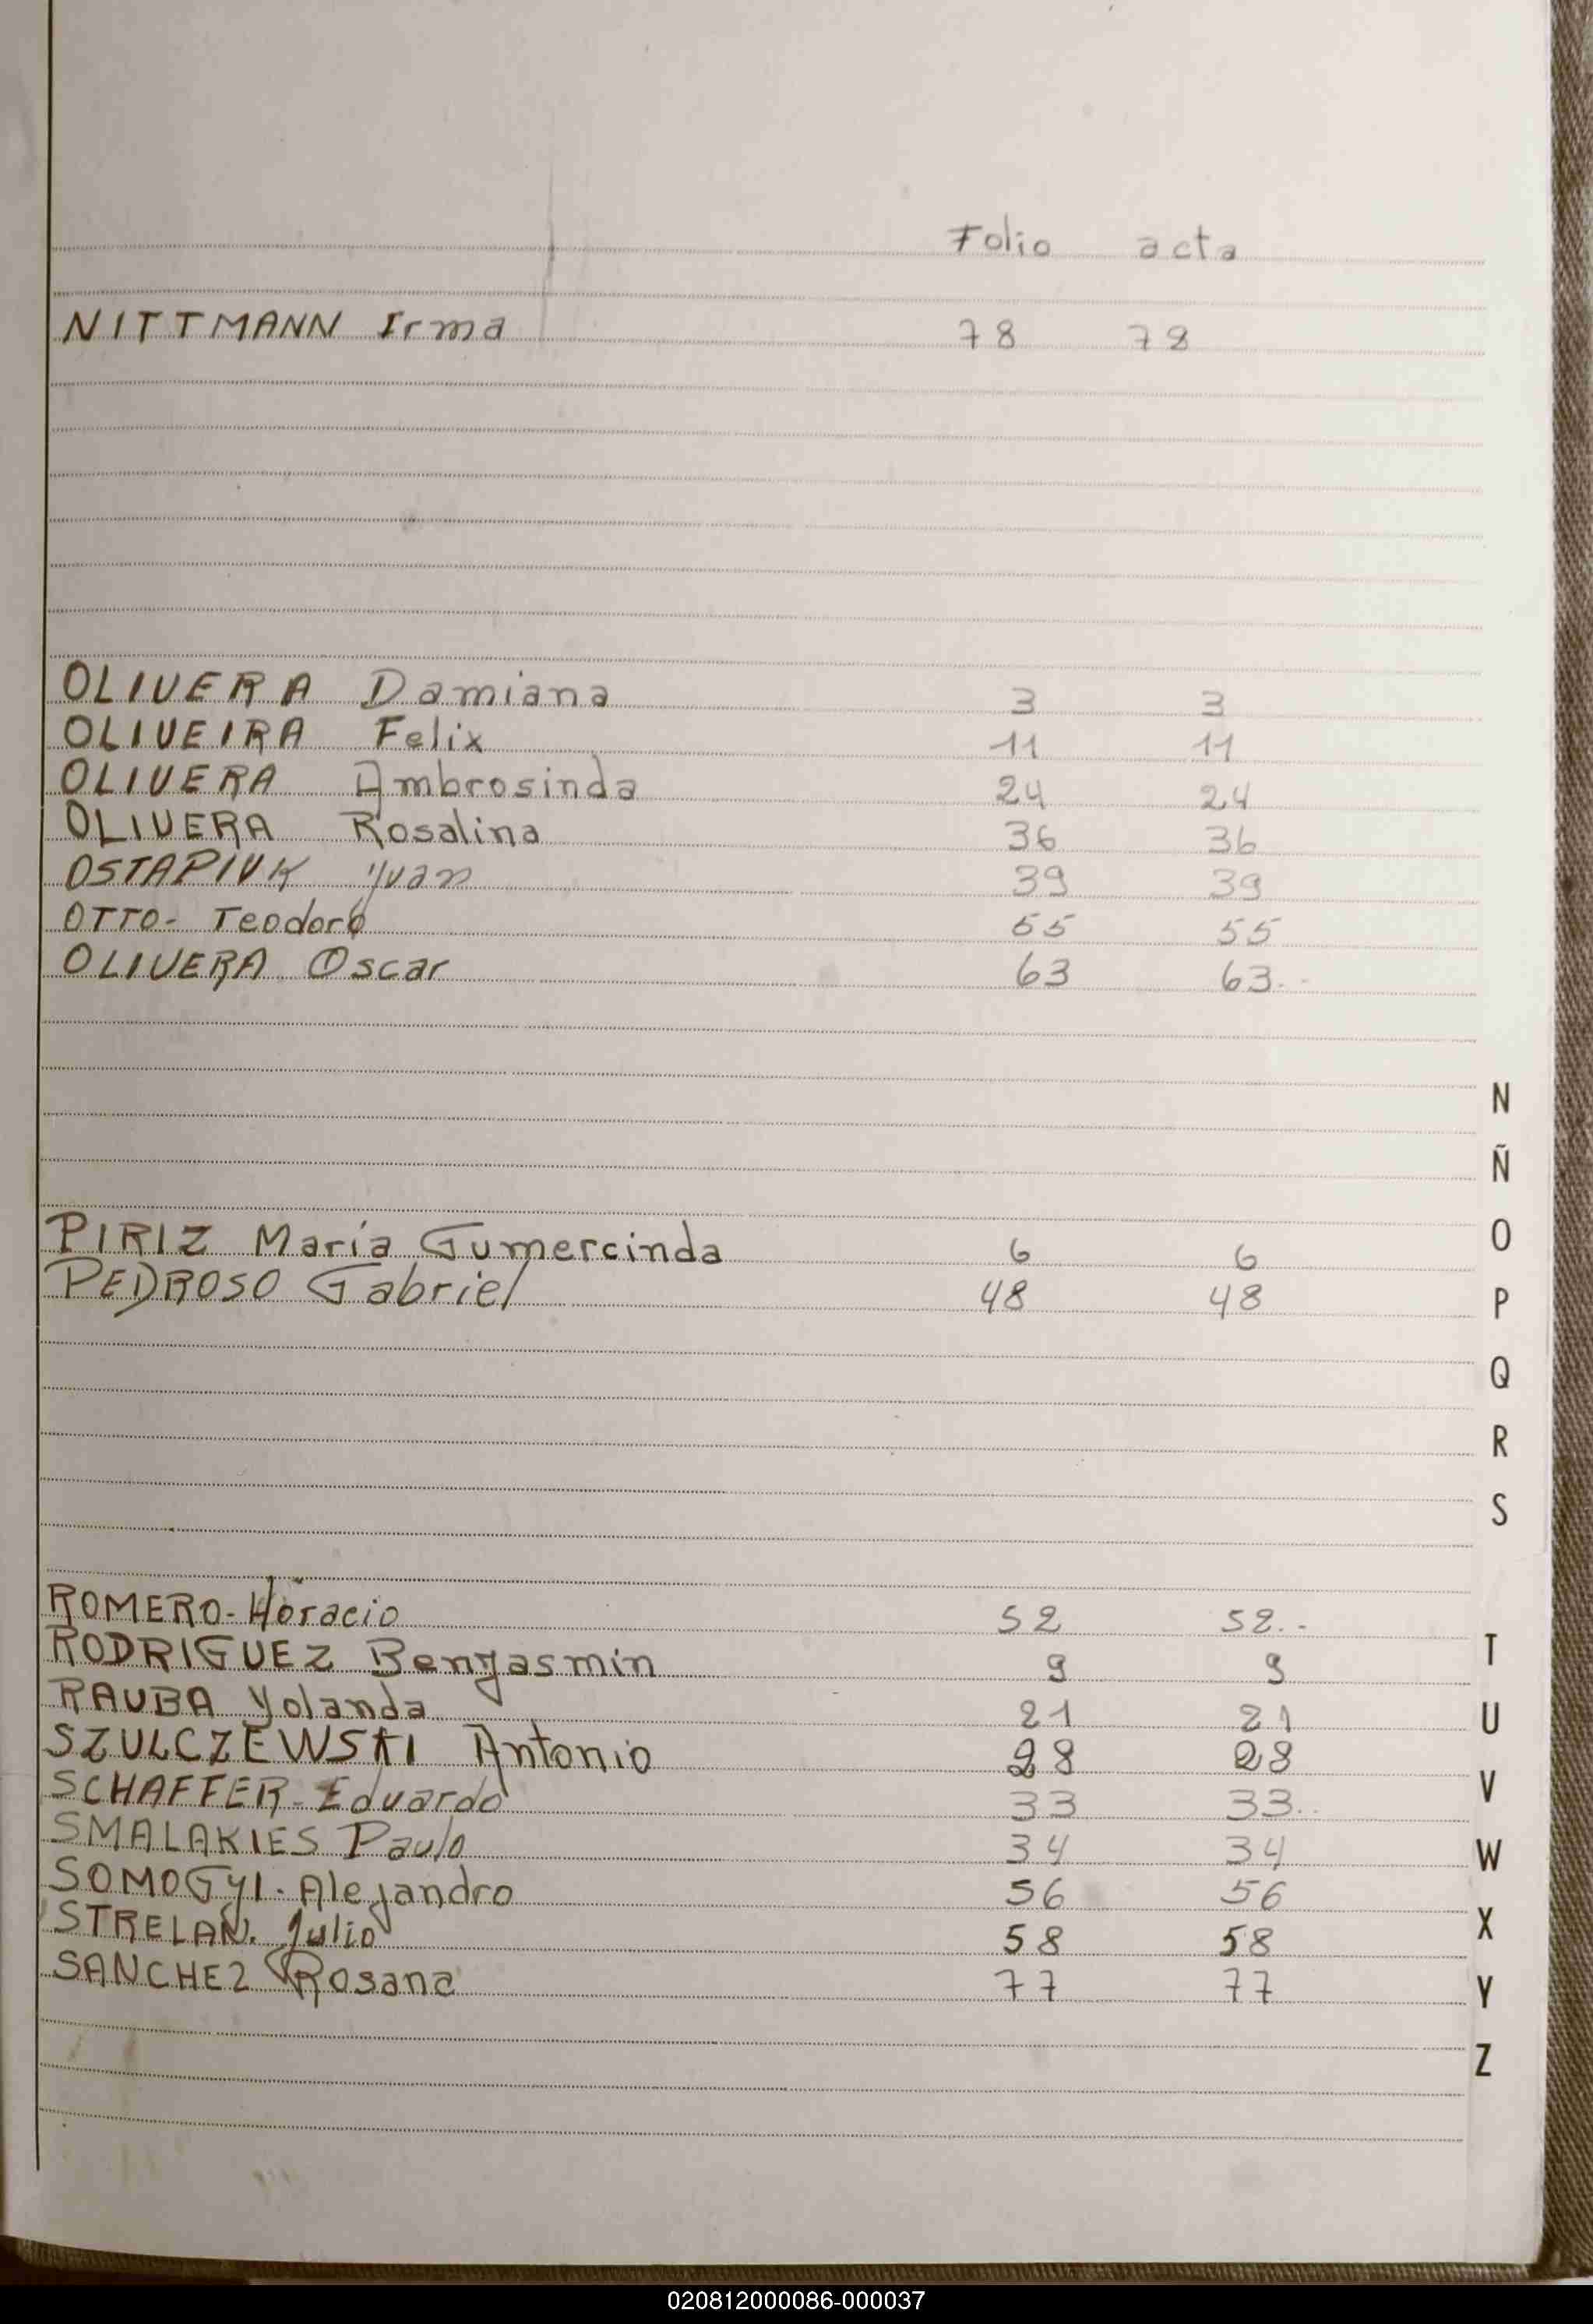 Folio acta
NITTMANN Irma 78 78
OLIVERA Damiana 3 3
OLIVEIRA Felix 11 11
OLIVERA Ambrosinda 24 24
OLIVERA Rosalina 36 36
OSTAPIUK Yuan 39 39
OTTO- Teodoro 55 55
OLIVERA Oscar 63 63..
N
Ñ
PIRIZ María Gumercinda 6 6
O
PEDROSO Gabriel 48 48
P
Q
R
S
ROMERO- Horacio 52 52..
RODRIGUEZ Benyasmin 9 9
T
RAUBA Yolanda 21 21
U
SZULCZEWSKI Antonio 28 28
SCHAFFER- Eduardo 33 33..
V
SMALAKIES Paulo 34 34
W
SOMOGYI. Alejandro 56 56
STRELAN. Julio 58 58
X
SANCHEZ Rosana 77 77
Y
Z
020812000086-000037